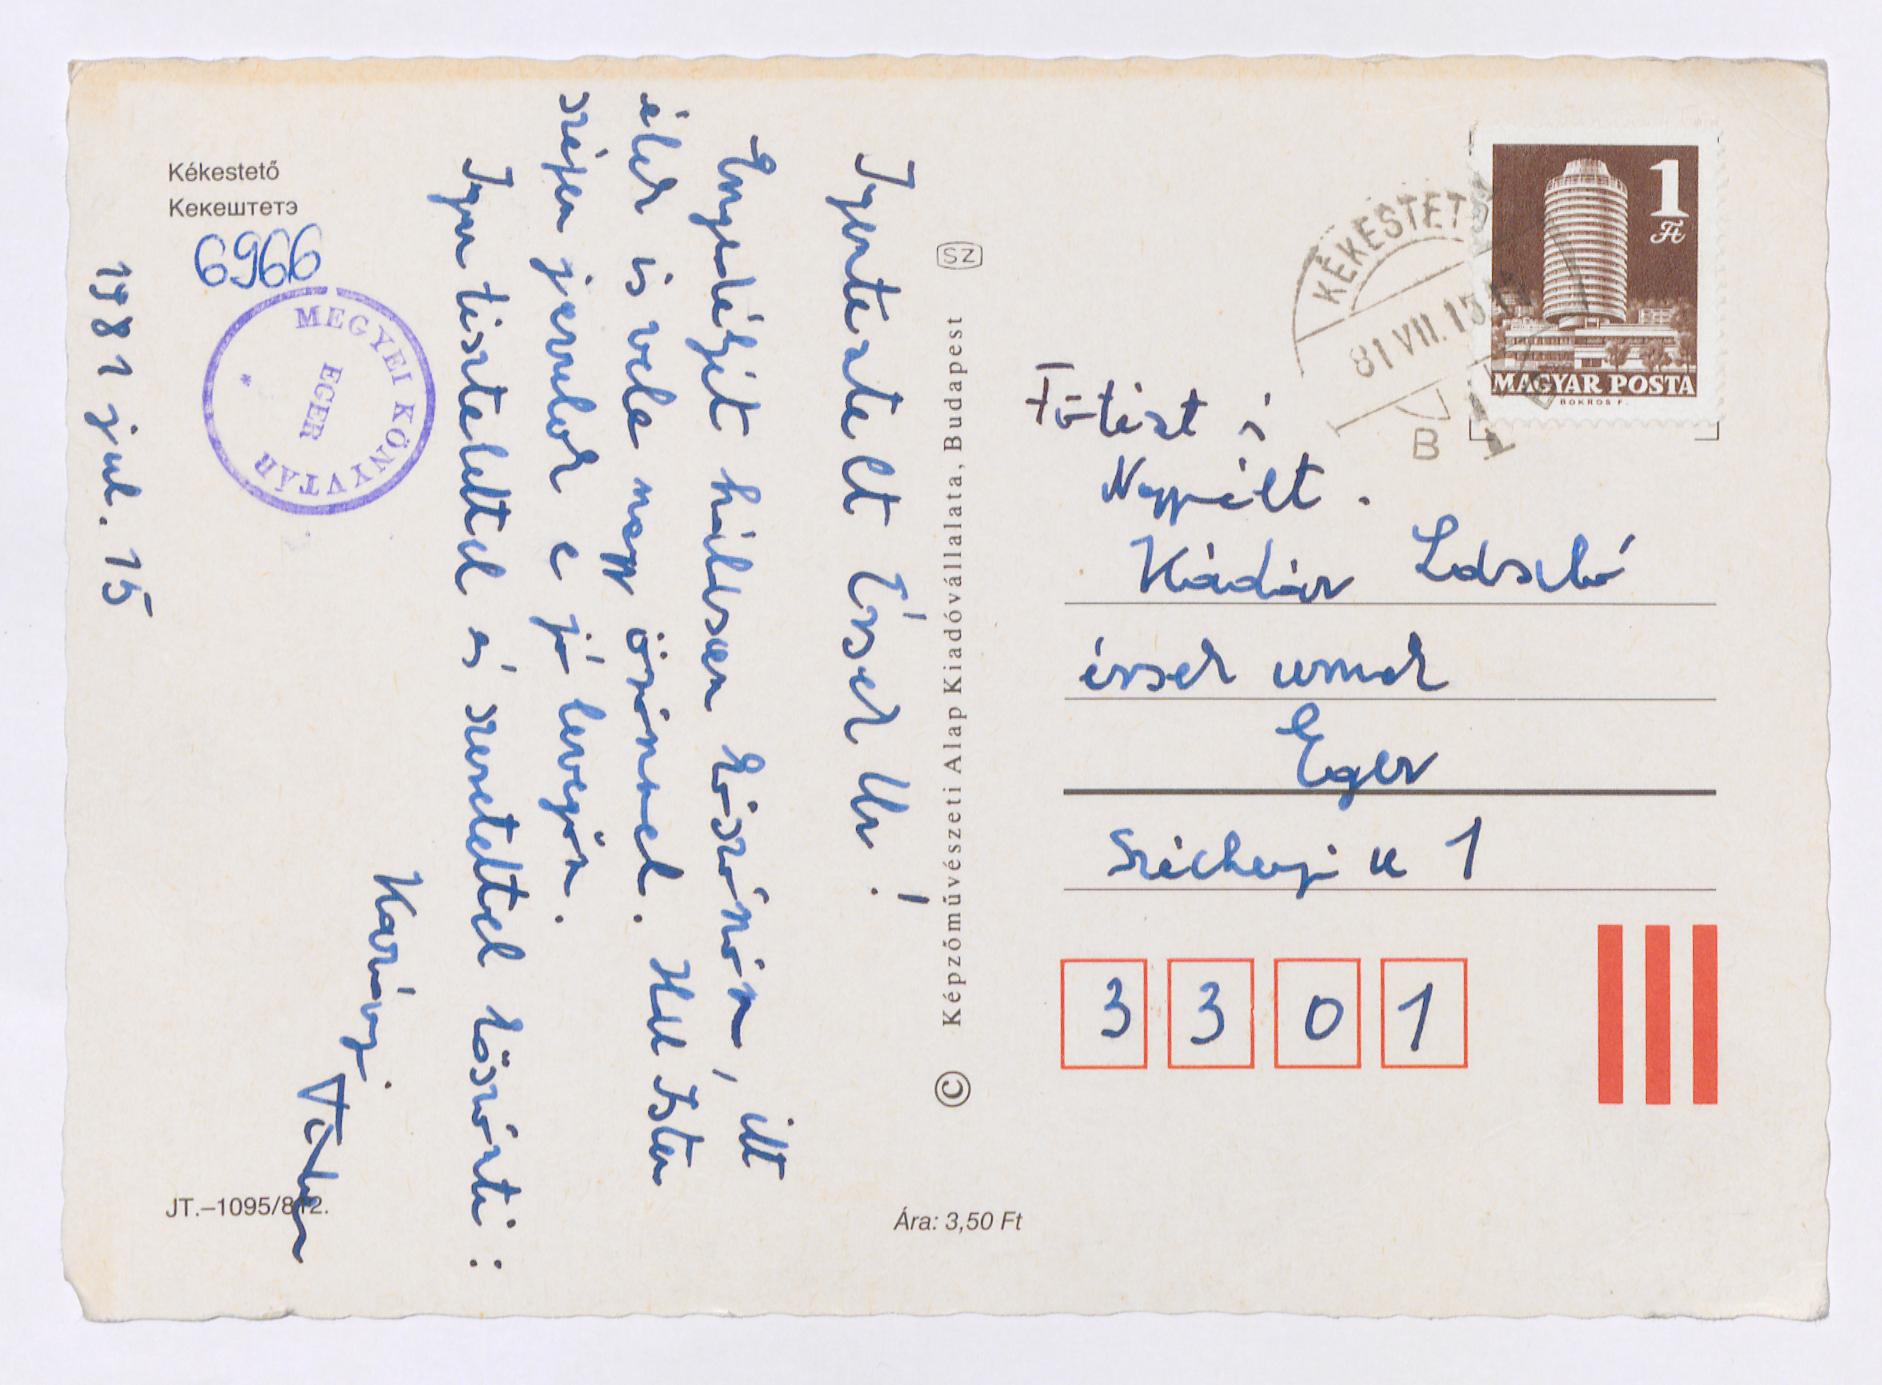 Kékestető
Кекештетэ
6966
MEGYEI KÖNYVTÁR
EGER
*
1981 jul. 15
Igentisztelt Érsek Ur!
Engedélyét hálásan köszönöm, itt
élek is vele nagy örömmel. Hál Isten
szépen javulok e jó levegőn.
Igen tisztelettel és szeretettel köszönti:
JT.–1095/812.
Ára: 3,50 Ft
SZ
© Képzőművészeti Alap Kiadóvállalata, Budapest
KÉKESTETŐ
81 VII. 15
B
1 Ft
MAGYAR POSTA
BOKROS F.
Főtiszt és
Nagymélt.
Kádár László
érsek urnak
Eger
Széchenyi u 1
3 3 0 1